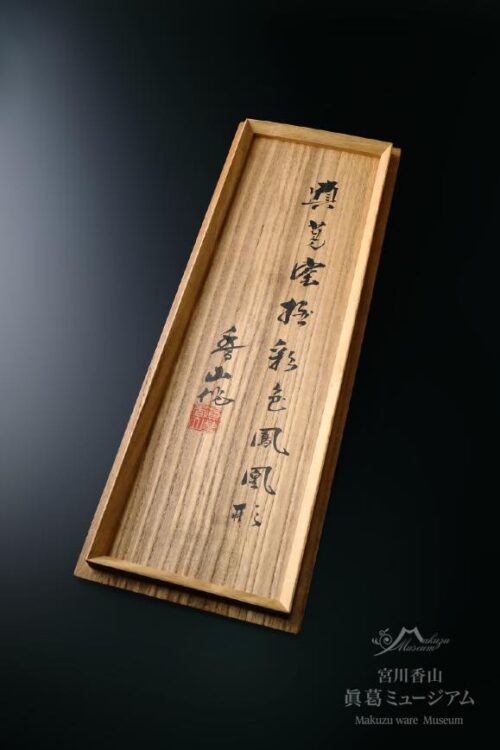 眞葛窯極彩色鳳凰形
香山作
Makuzu
Museum
宮川香山
眞葛ミュージアム
Makuzu ware Museum